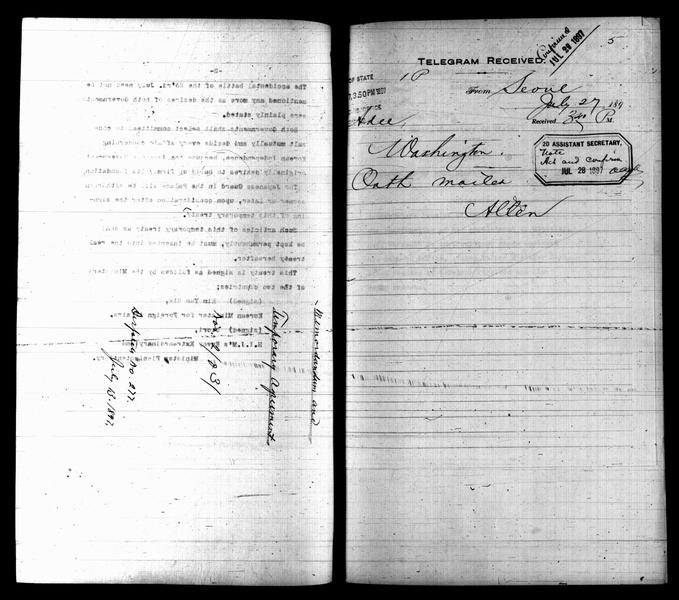 -2-
The accidental battle of the 23rd. July need not be
mentioned any more as the desires of both Governments
were plainly stated.
Both Governments shall select committees to con-
sult mutually and decide every affair concerning
Korean independence, because the Japanese Government
originally desires to build it firmly its foundation
The Japanese Guard in the Palace will be withdrawn
sooner or later, upon consultation after the sign-
ing of this temporary treaty.
Such articles of this temporary treaty as must
be kept permanently, must be inserted into the real
treaty hereafter.
This treaty is signed as follows by the Ministers
of the two countries;
(signed) Kim Yun Sik,
Korean Minister for Foreign Affairs.
(signed)
H.I.J.M's Envoy Extraordinary and
Minister Plenipotentiary.
Memorandum and
Temporary Agreement
Despatch No. 277.
July 13. 1897
5
Confirmed
JUL 28 1897
TELEGRAM RECEIVED.
OF STATE
3.50 PM 1897
1P
From Seoul
July 27 189
Received P M.
Adee,
Washington.
2D ASSISTANT SECRETARY,
Note
Ack and confirm
JUL 28 1897
Oath mailed
Allen